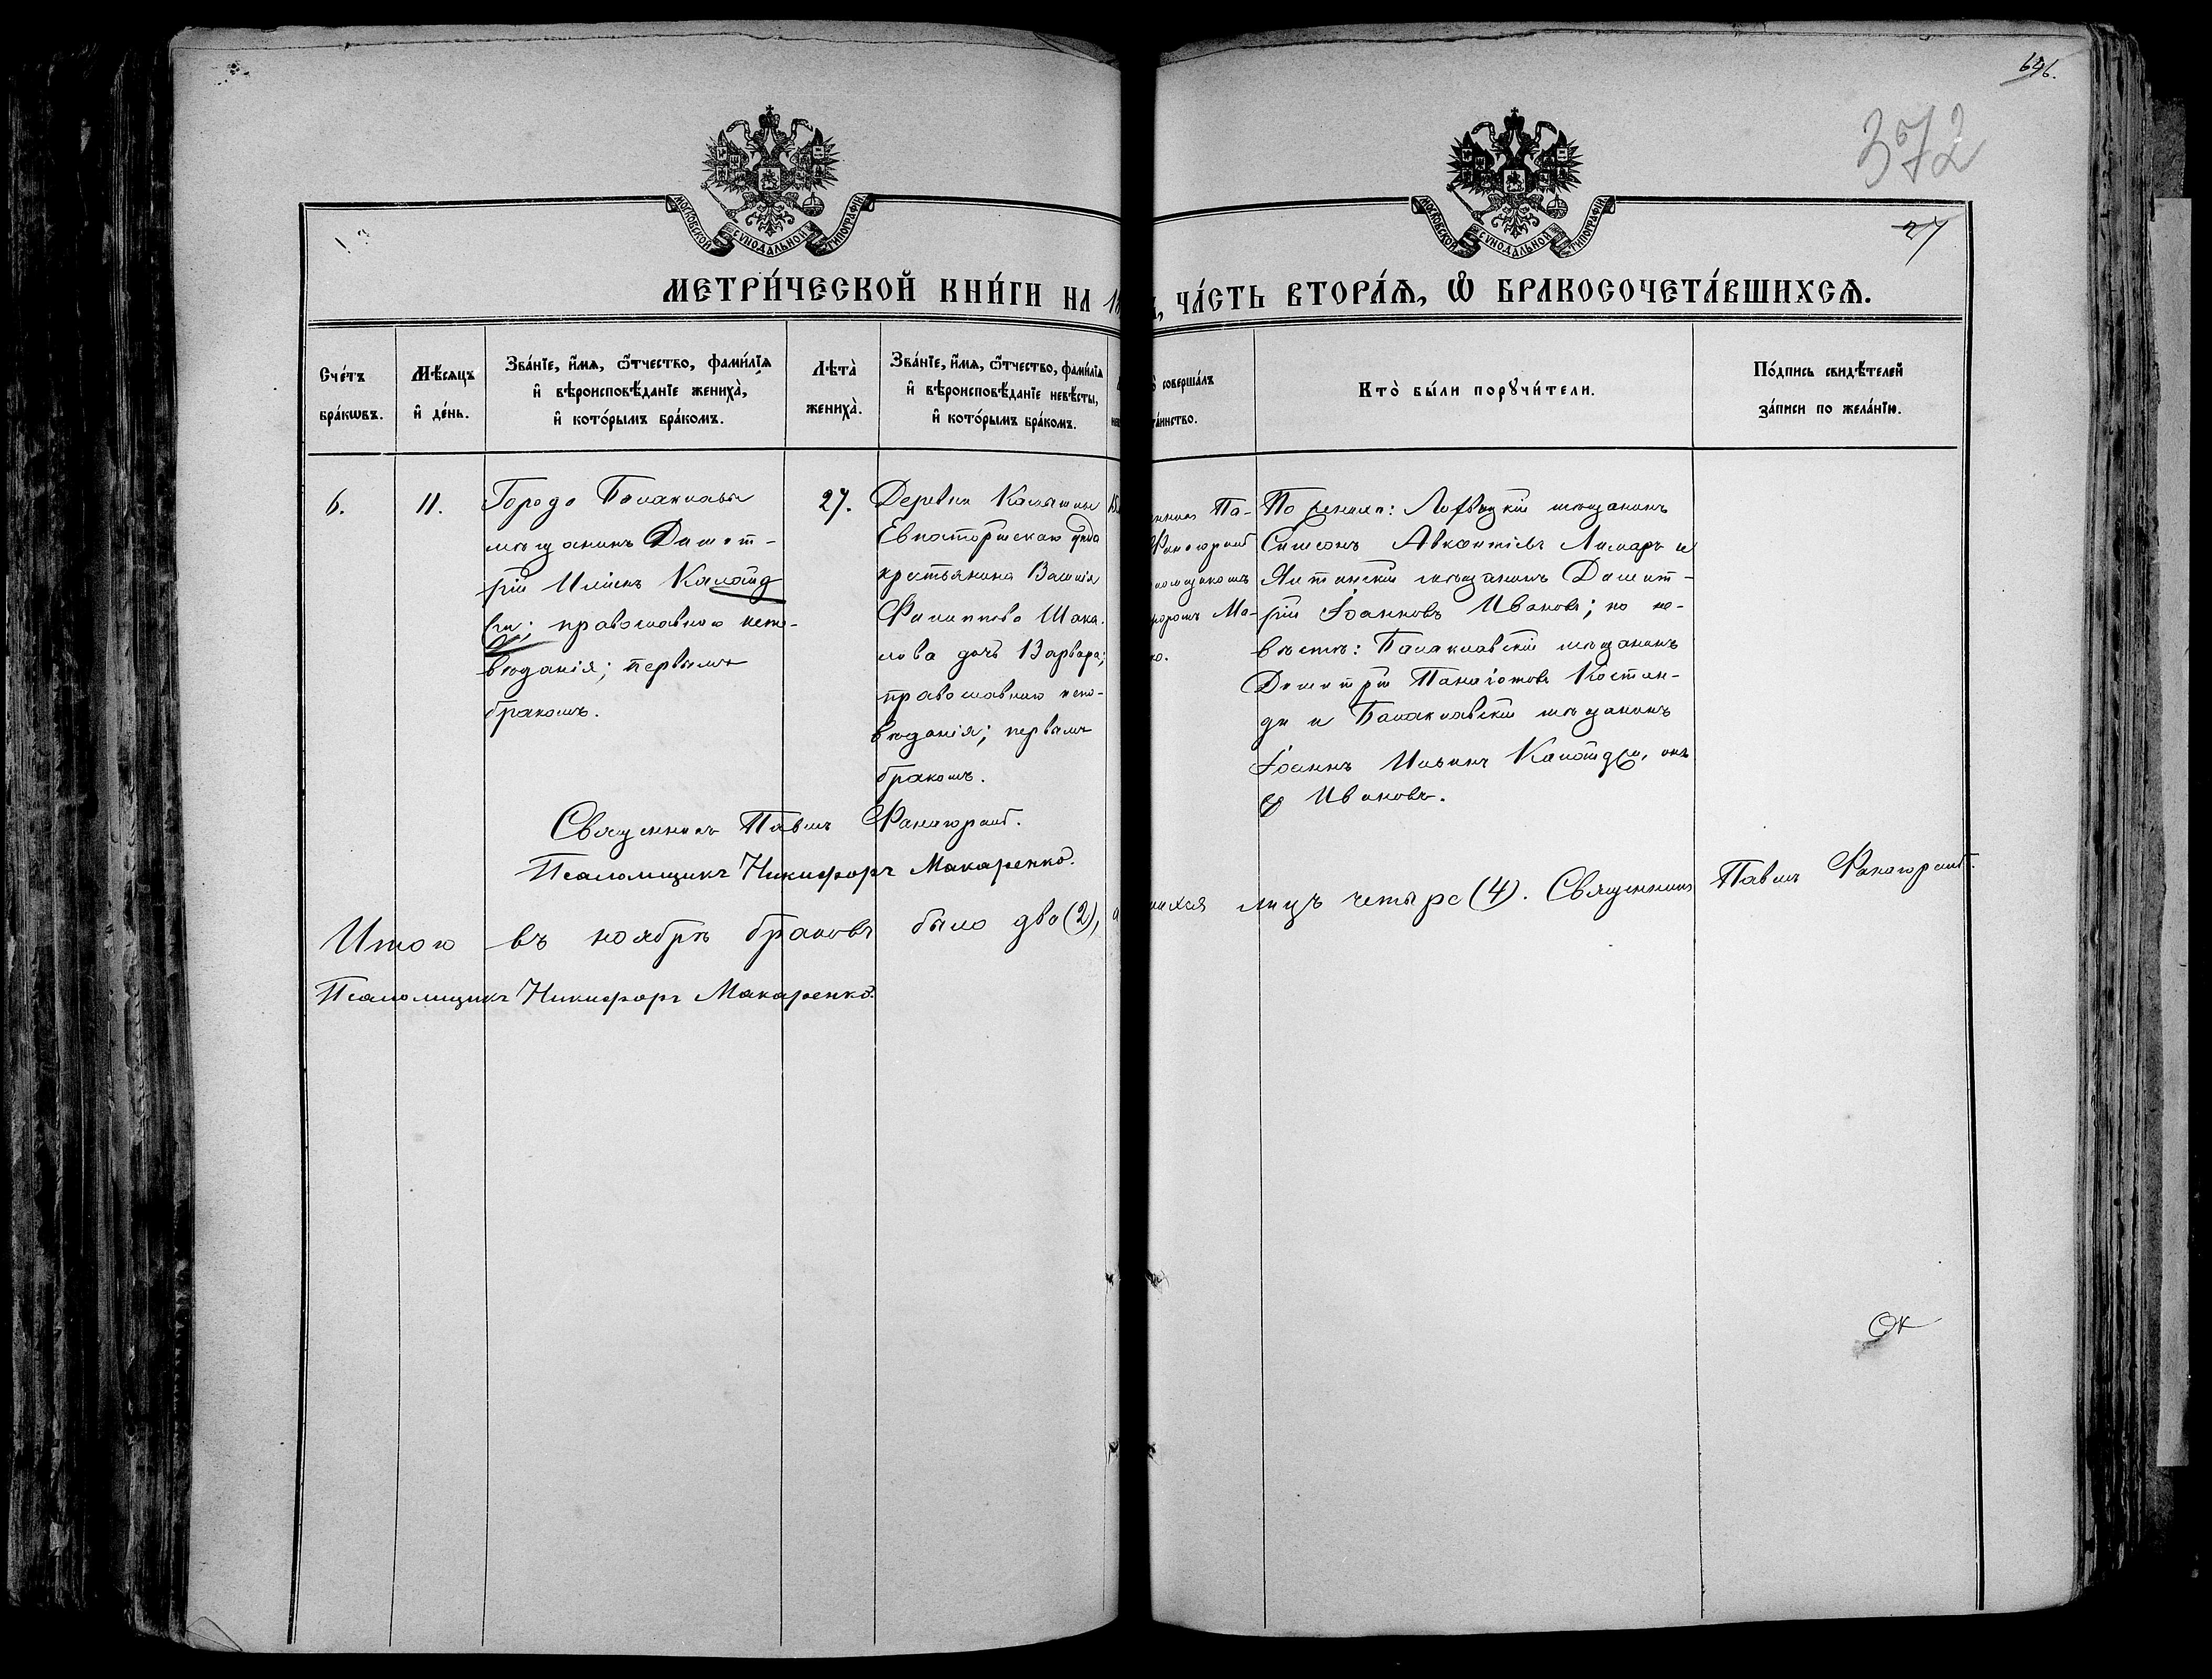 696.
372
27
МОСКОВСКОЙ СУНОДАЛЬНОЙ ТИПОГРАФІИ
МОСКОВСКОЙ СУНОДАЛЬНОЙ ТИПОГРАФІИ
МЕТРИ́ЧЕСКОЙ КНИ́ГИ НА 18
, ЧА́СТЬ ВТОРА́Ѧ, Ѽ БРАКОСОЧЕТА́ВШИХСѦ.
Сче́тъ
бра́кѡвъ.
Мѣ́сяцъ
и҆ де́нь.
Зва́нїе, и҆́мя, ѻ҆́тчество, фами́лїя
и҆ вѣроисповѣ́данїе жениха̀,
и҆ кото́рымъ бра́комъ.
Лѣ́та
жениха̀.
Зва́нїе, и҆́мя, ѻ҆́тчество, фами́лїя
и҆ вѣроисповѣ́данїе невѣ́сты,
и҆ кото́рымъ бра́комъ.
соверша́лъ
та́инство.
Кто̀ бы́ли порꙋчи́тели.
По́дпись свидѣ́телей
за́писи по жела́нїю.
6.
11.
Города Балаклавы
мѣщанинъ Димит-
рій Ильинъ Калайд
жи; православнаго испо-
вѣданія; первымъ
бракомъ.
27.
Деревни
Евпаторійскаго уѣзда
крестьянина Василія
Филиппова Шака-
лова дочь Варвара;
православнаго испо-
вѣданія; первымъ
бракомъ.
Па-
Фанагорскій
Ма-
ко.
По женихѣ: мѣщанинъ
Симеонъ и
Ялтинскій мѣщанинъ Димит-
рій Іоанновъ Ивановъ; по не-
вѣстѣ: Балаклавскій мѣщанинъ
Димитрій Панаіотовъ Костан-
ди и Балаклавскій мѣщанинъ
Іоаннъ Ильинъ Калайджи, онъ
же Ивановъ.
Священникъ Павелъ
Псаломщикъ Никифоръ Макаренко.
Итого въ ноябрѣ браковъ было два (2), а
шихся лицъ четыре (4). Священникъ Павелъ
Псаломщикъ Никифоръ Макаренко.